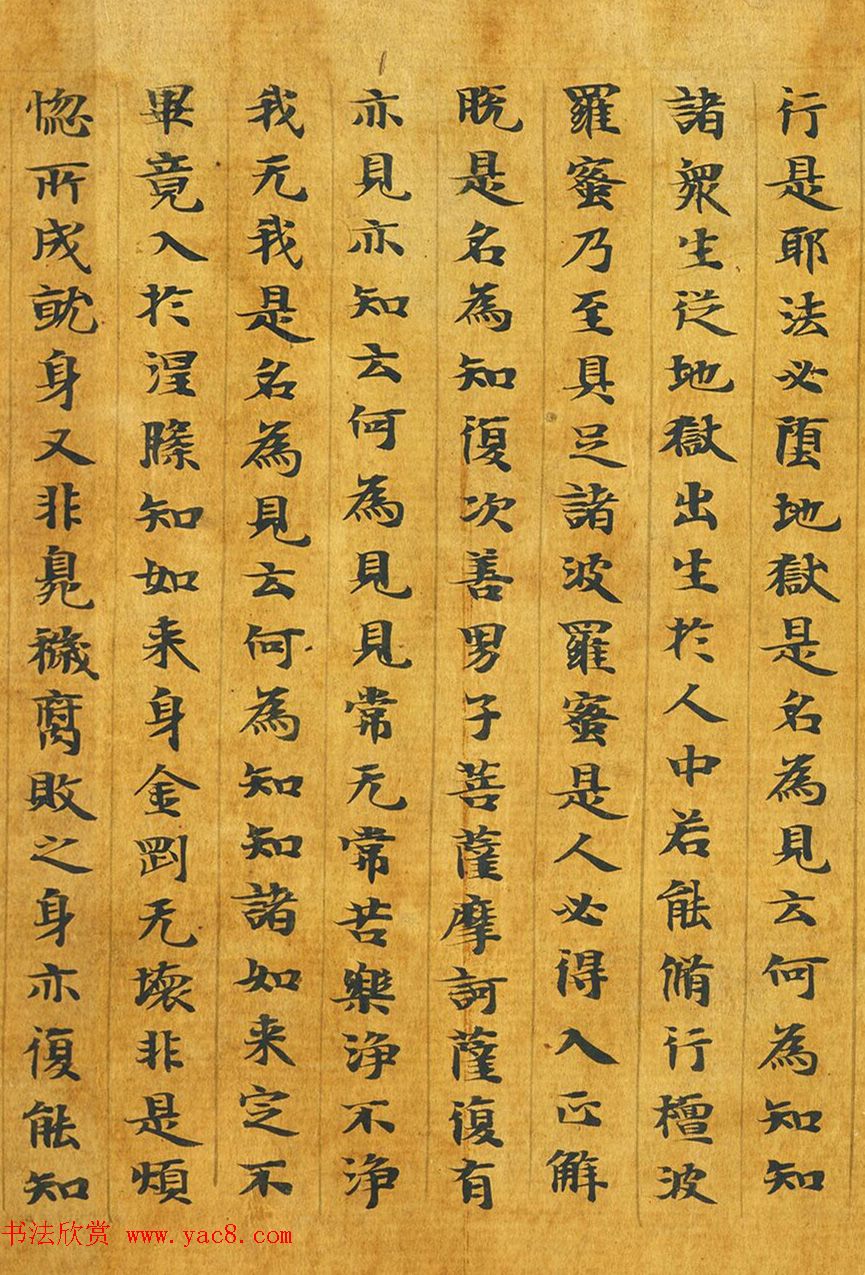 行是耶法必堕地獄是名為見云何為知知
諸衆生従地獄出生於人中若能脩行檀波
羅蜜乃至具足諸波羅蜜是人必得入正解
脱是名為知復次善男子菩薩摩訶薩復有
亦見亦知云何為見見常无常苦樂浄不浄
我无我是名為見云何為知知諸如来定不
畢竟入於涅槃知如来身金剛无壞非是煩
惚所成就身又非臰穢腐敗之身亦復能知
书法欣赏 www.yac8.com